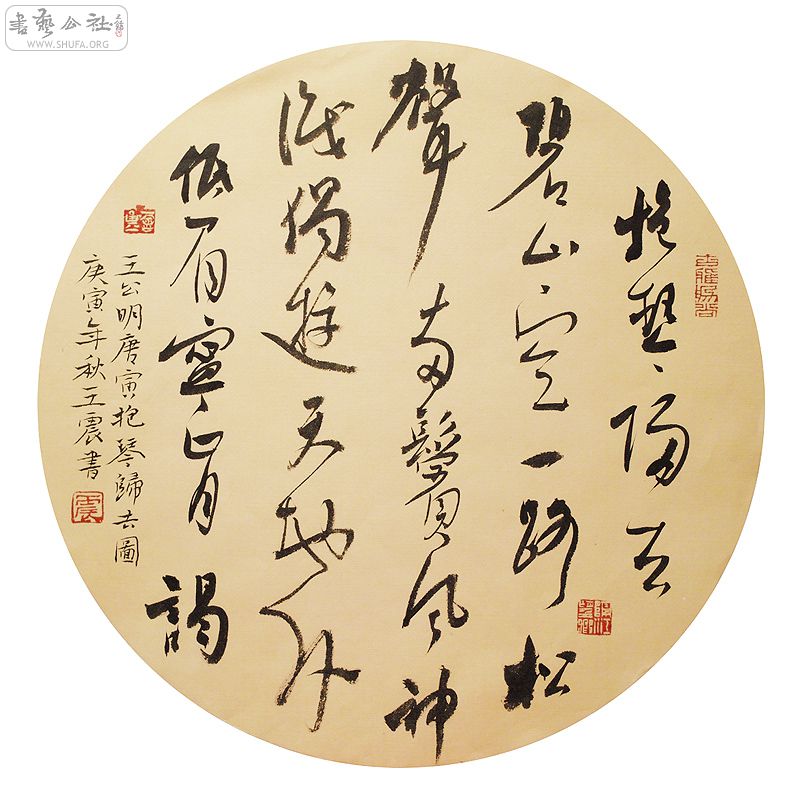 書藝公社
WWW.SHUFA.ORG
抱琴歸去
碧山空一路松
聲兩鬢風神
識獨遊天地外
低眉寧肯謁
王公明唐寅抱琴歸去圖
庚寅年秋王震書